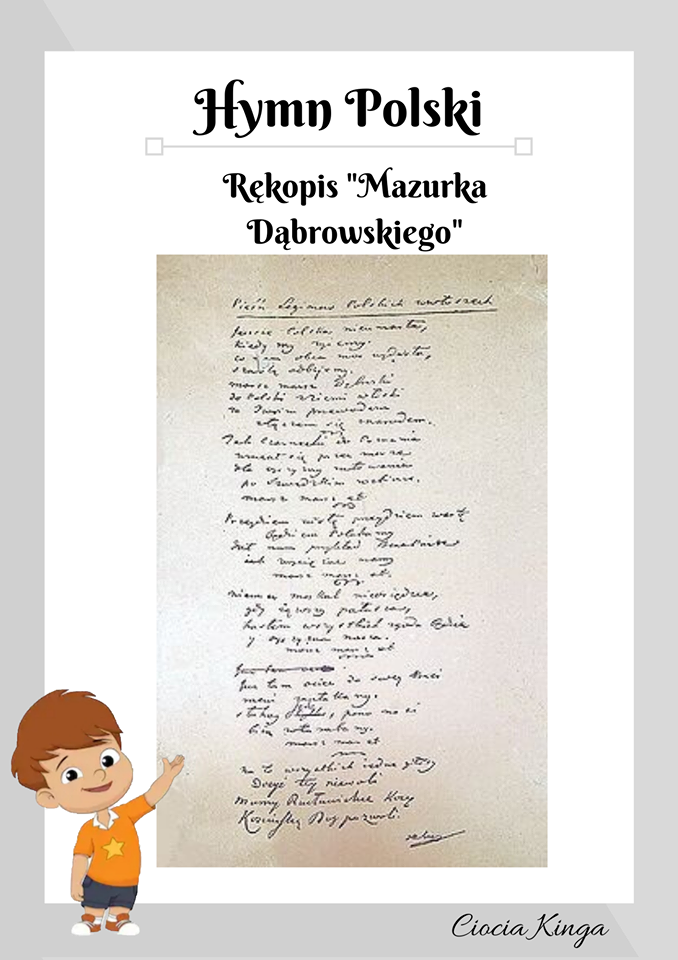 Hymn Polski
Rękopis "Mazurka
Dąbrowskiego"
Pieśń Legionów Polskich we włoszech
Jeszcze Polska nie umarła,
kiedy my żyjemy.
co nam obca moc wydarła,
szablą odbijemy.
marsz marsz Dąbrowski
do Polski z ziemi włoski
za Twoim przewodem
złączem się z narodem.
Jak Czarnecki do Poznania
wracał się przez morze
dla ojczyzny ratowania
po Szwedzkim rozbiorze.
marsz marsz et
Przejdziem wisłę przejdziem wartę
będziem Polakamy
dał nam przykład Bonaparte
jak zwyciężać mamy
marsz marsz et.
niemiec moskal nieosiędzie,
gdy jąwszy pałasza,
hasłem wszystkich zgoda będzie
y ojczyzna nasza.
marsz marsz et
Już tam ociec do swey Basi
mowi zapłakany.
słuchay, pono nasi
biią w tarabany.
marsz marsz et
na to wszystkich iedne głosy
Dosyć tey niewoli
Mamy Racławickie Kosy
Kościuszkę Bog pozwoli.
Ciocia Kinga